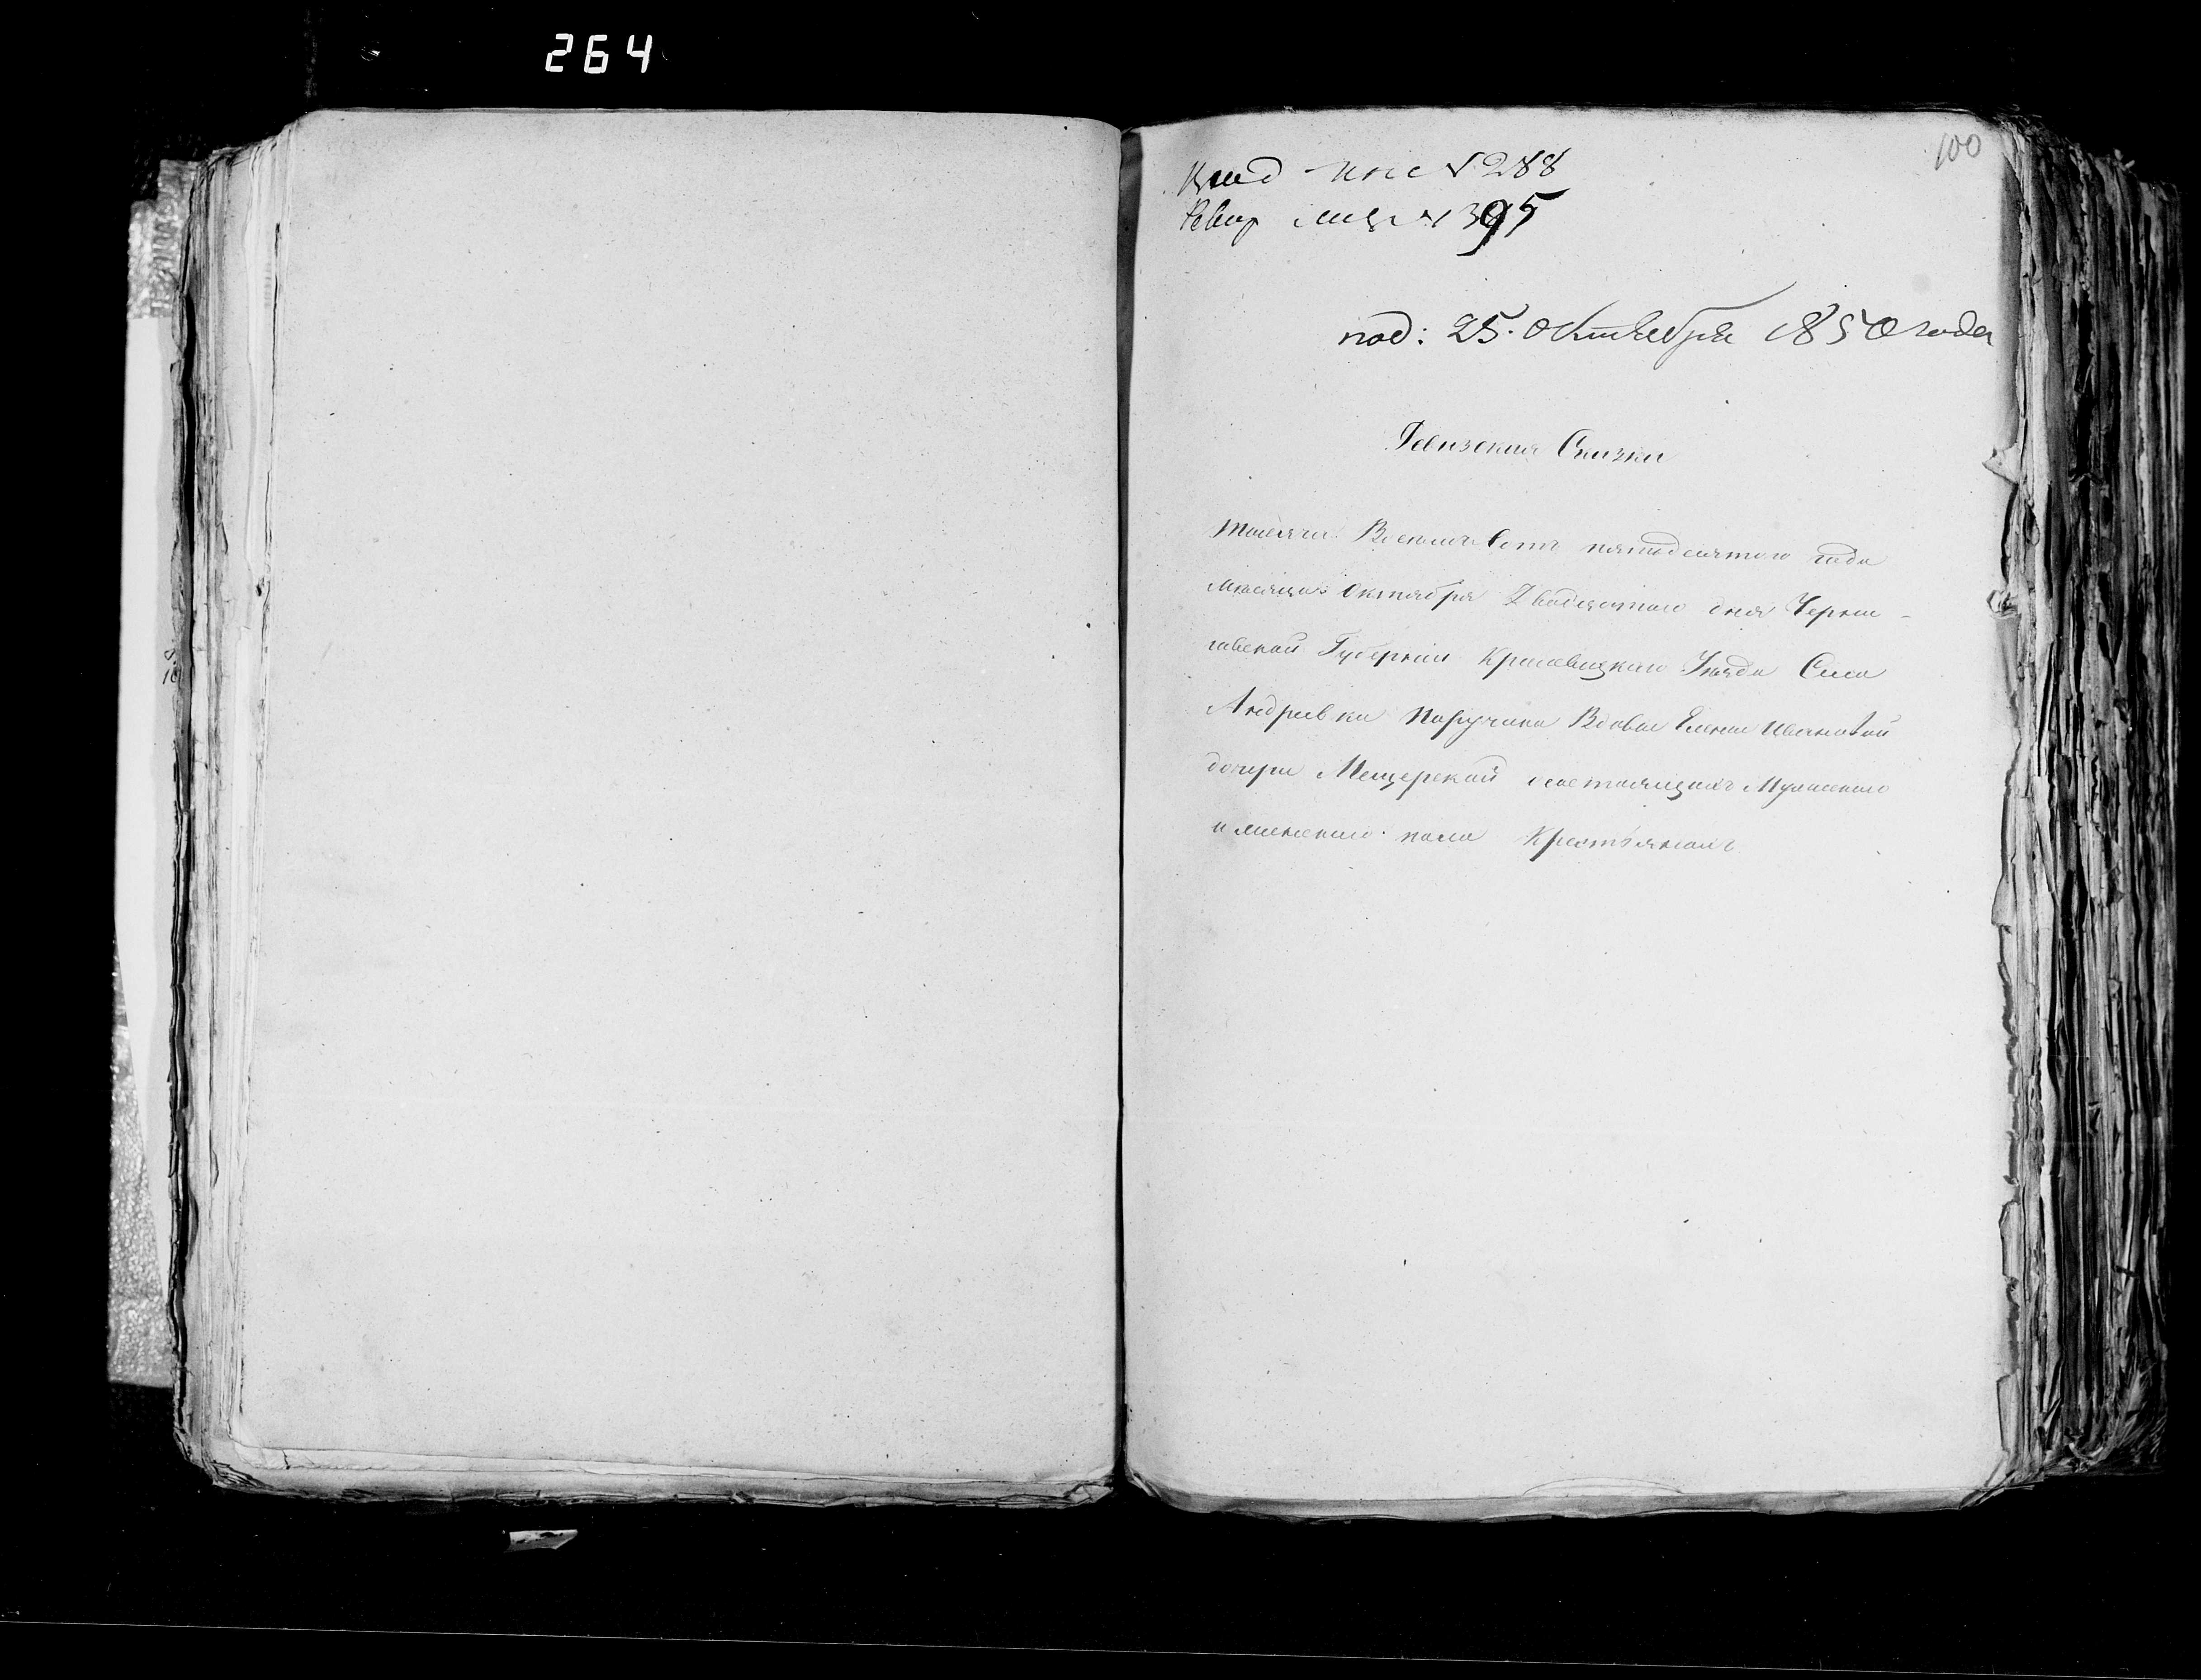 264
100
№ 288
Ревиз № 1395
под: 25. Октября 1850 года
Ревизская Сказка
Тысяча Восемьсотъ пятьдесятого года
Месяца Октября Двадцятого дня Черни-
говской Губерніи Кролевецкого Уезда Села
Андреевки Поручика Вдовы Елены Ивановой
дочери Мещерской о состоящихъ Мужеского
и женского пола Крестьянахъ